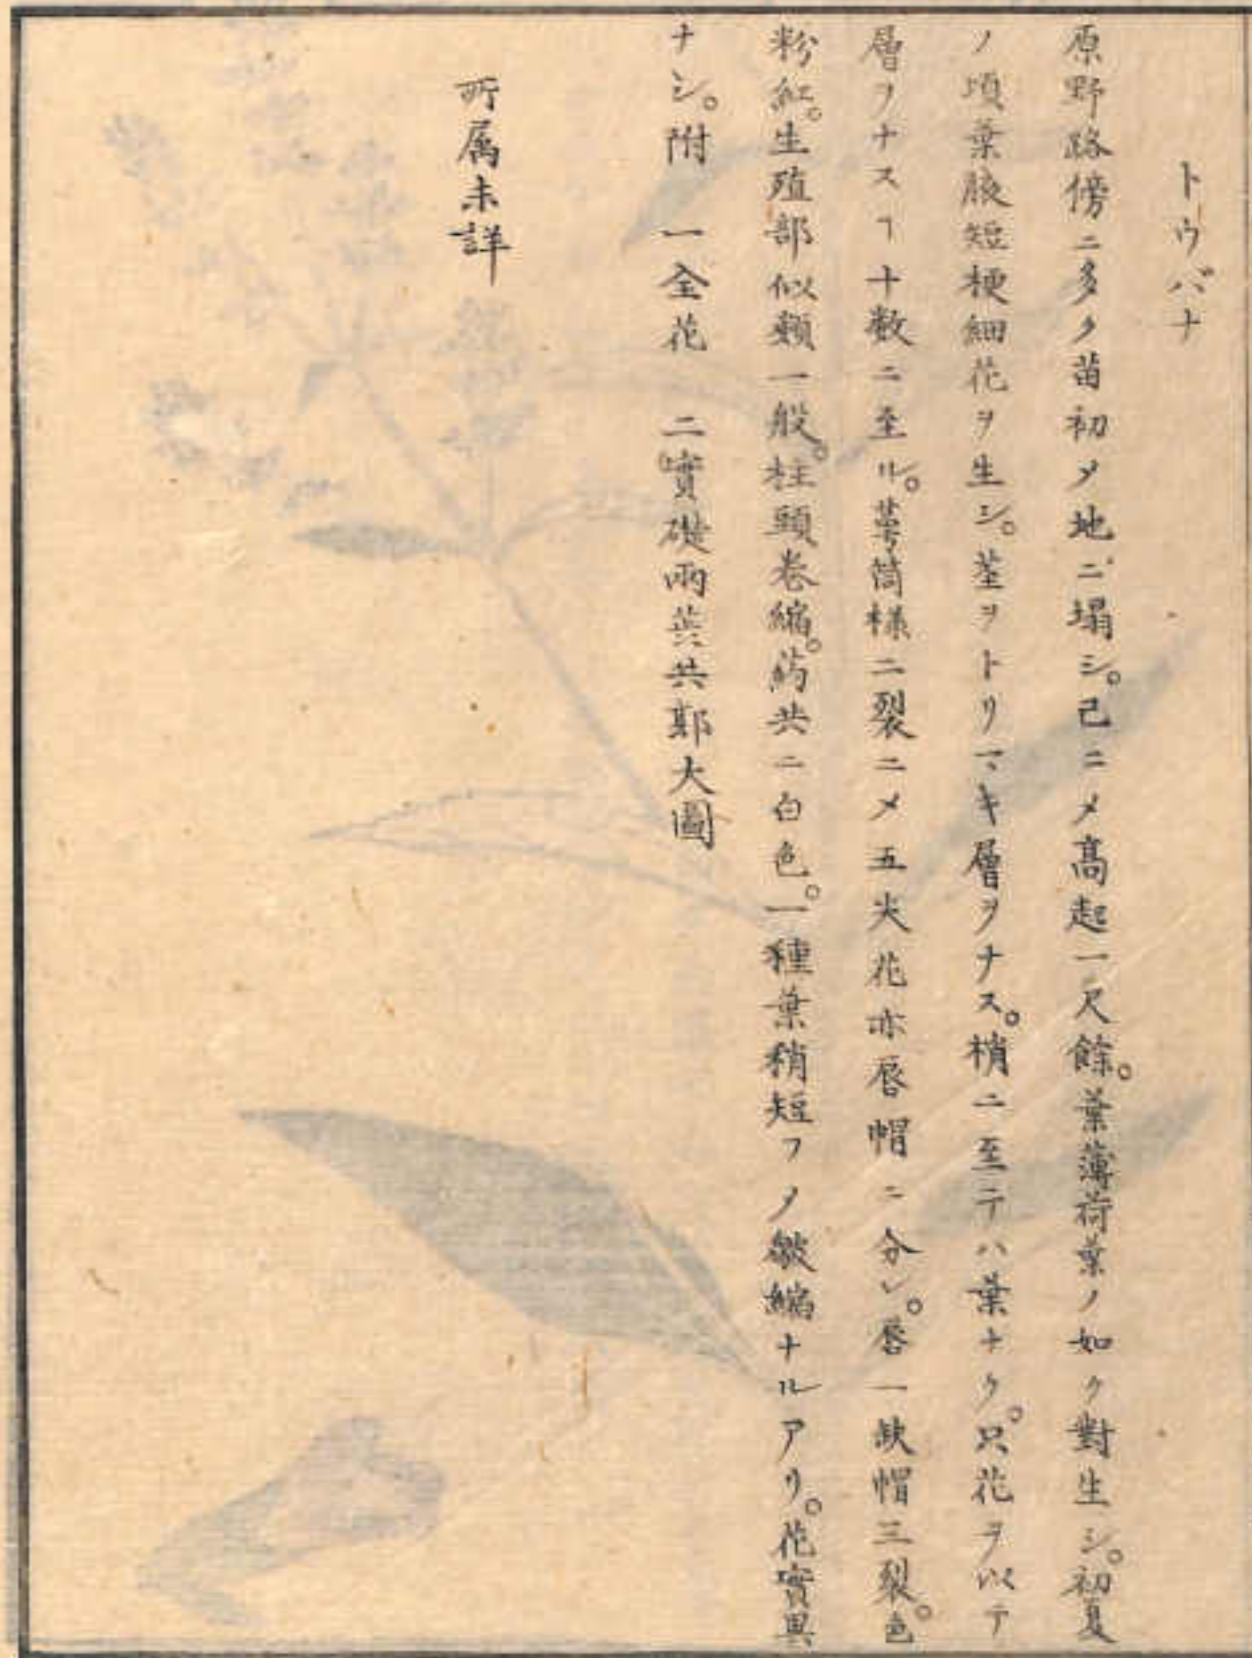 トウバナ
原野路傍ニ多ク苗初メ地ニ塌シ。已ニメ高起一尺餘。葉薄荷葉ノ如ク對生シ。初夏
ノ頃葉腋短梗細花ヲ生シ。莖ヲトリマキ層ヲナス。梢ニ至テハ葉ナク。只花ヲ以テ
層ヲナスヿ十数ニ至ル。萼筒様二裂ニメ五尖花亦唇帽ニ分レ。唇一缺帽三裂。色
粉紅。生殖部似類一般。柱頭卷縮。葯共ニ白色。一種葉稍短フメ皺縮ナルアリ。花實異
ナシ。附 一全花 二實礎兩蕋共郭大圖
所属未詳